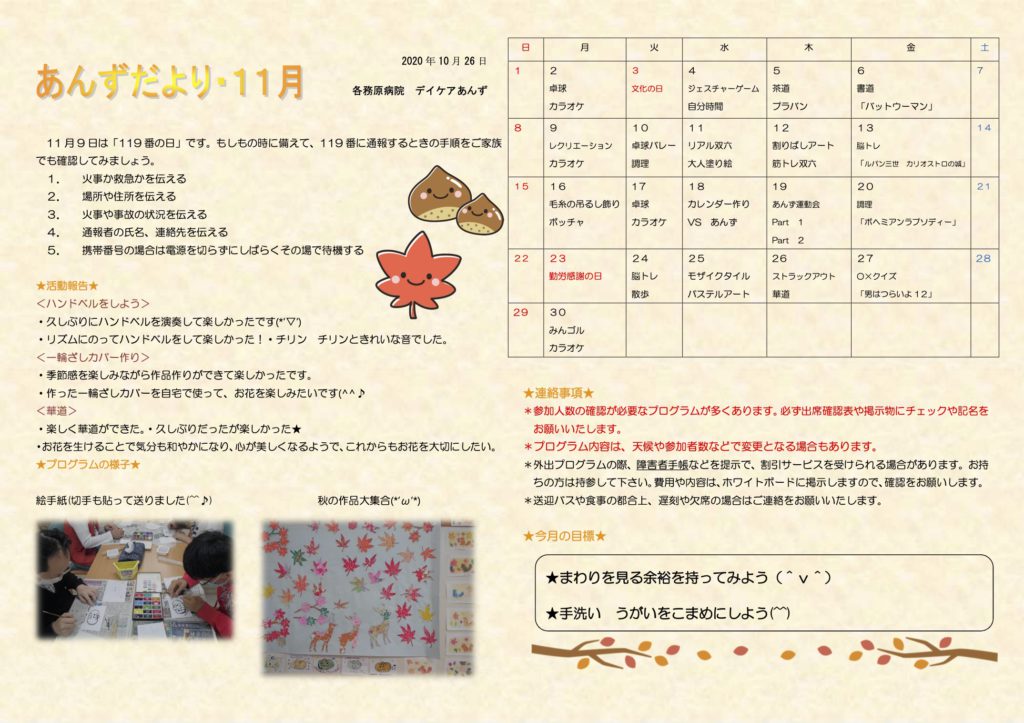 あんずだより・11月
2020年10月26日
各務原病院　デイケアあんず
11月9日は「119番の日」です。もしもの時に備えて、119番に通報するときの手順をご家族
でも確認してみましょう。
1.　火事か救急かを伝える
2.　場所や住所を伝える
3.　火事や事故の状況を伝える
4.　通報者の氏名、連絡先を伝える
5.　携帯番号の場合は電源を切らずにしばらくその場で待機する
★活動報告★
＜ハンドベルをしよう＞
・久しぶりにハンドベルを演奏して楽しかったです(*'▽')
・リズムにのってハンドベルをして楽しかった！・チリン　チリンときれいな音でした。
＜一輪ざしカバー作り＞
・季節感を楽しみながら作品作りができて楽しかったです。
・作った一輪ざしカバーを自宅で使って、お花を楽しみたいです(^^♪
＜華道＞
・楽しく華道ができた。・久しぶりだったが楽しかった★
・お花を生けることで気分も和やかになり、心が美しくなるようで、これからもお花を大切にしたい。
★プログラムの様子★
絵手紙(切手も貼って送りました(⌒♪)
秋の作品大集合(*'ω'*)
日　月　火　水　木　金　土
1　2　3　4　5　6　7
卓球　文化の日　ジェスチャーゲーム　茶道　書道
カラオケ　自分時間　プラバン　「バットウーマン」
8　9　10　11　12　13　14
レクリエーション　卓球バレー　リアル双六　割りばしアート　脳トレ
カラオケ　調理　大人塗り絵　筋トレ双六　「ルパン三世　カリオストロの城」
15　16　17　18　19　20　21
毛糸の吊るし飾り　卓球　カレンダー作り　あんず運動会　調理
ボッチャ　カラオケ　VS　あんず　Part　1　「ボヘミアンラプソディー」
Part　2
22　23　24　25　26　27　28
勤労感謝の日　脳トレ　モザイクタイル　ストラックアウト　○×クイズ
散歩　パステルアート　華道　「男はつらいよ12」
29　30
みんゴル
カラオケ
★連絡事項★
＊参加人数の確認が必要なプログラムが多くあります。必ず出席確認表や掲示物にチェックや記名を
お願いいたします。
＊プログラム内容は、天候や参加者数などで変更となる場合もあります。
＊外出プログラムの際、障害者手帳などを提示で、割引サービスを受けられる場合があります。お持
ちの方は持参して下さい。費用や内容は、ホワイトボードに掲示しますので、確認をお願いします。
＊送迎バスや食事の都合上、遅刻や欠席の場合はご連絡をお願いいたします。
★今月の目標★
★まわりを見る余裕を持ってみよう（＾ｖ＾）
★手洗い　うがいをこまめにしよう(^^)